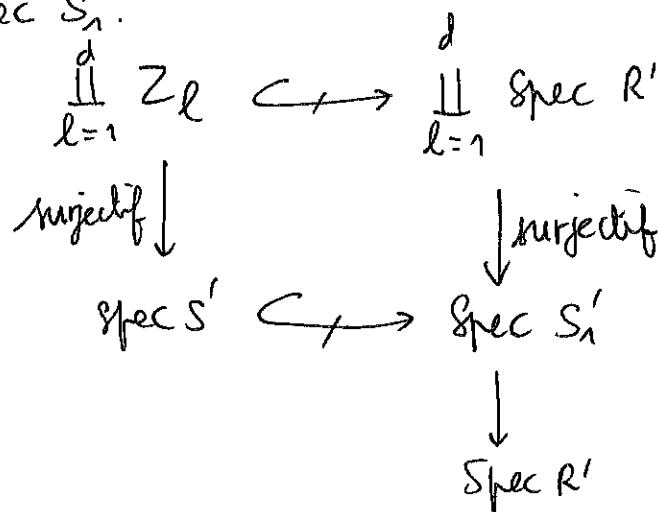 ec S₁.
d
∐ Z_ℓ ↪ ∐ Spec R'
ℓ=1
d
ℓ=1
surjectif ↓ ↓ surjectif
Spec S' ↪ Spec S₁'
↓
Spec R'